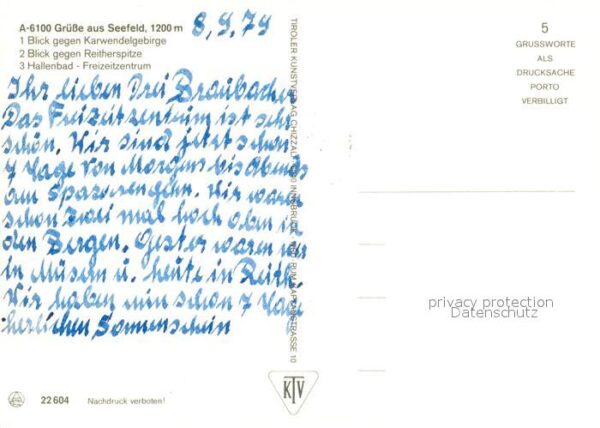 A-6100 Grüße aus Seefeld, 1200 m
8,9,79
1 Blick gegen Karwendelgebirge
2 Blick gegen Reitherspitze
3 Hallenbad - Freizeitzentrum
Ihr lieben Drei Braubacher
Das Freizeitzentrum ist sehr
schön. Wir sind jetzt schon
7 Tage von Morgens bis Abends
am Spazierengehn. Wir waren
schon zwei mal hoch oben in
den Bergen. Gester waren wir
in Müsern u. heute in Reith.
Wir haben nun schon 7 Tage
herlichen Sonnenschein
TIROLER KUNSTVERLAG CHIZZALI INNSBRUCK STRASSE 10
5
GRUSSWORTE
ALS
DRUCKSACHE
PORTO
VERBILLIGT
privacy protection
Datenschutz
22 604 Nachdruck verboten!
KTV